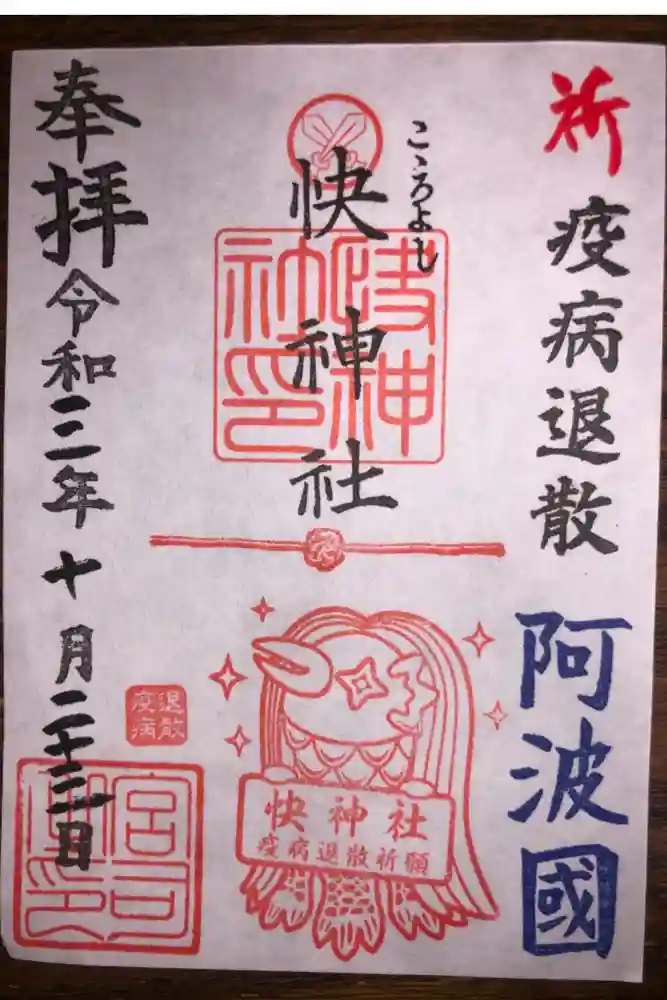 祈 疫病退散 阿波國
こゝろよし
快神社
快神社印
快神社
疫病退散祈願
奉拝 令和三年十月二十三日
退散
疫病
宮司
之印